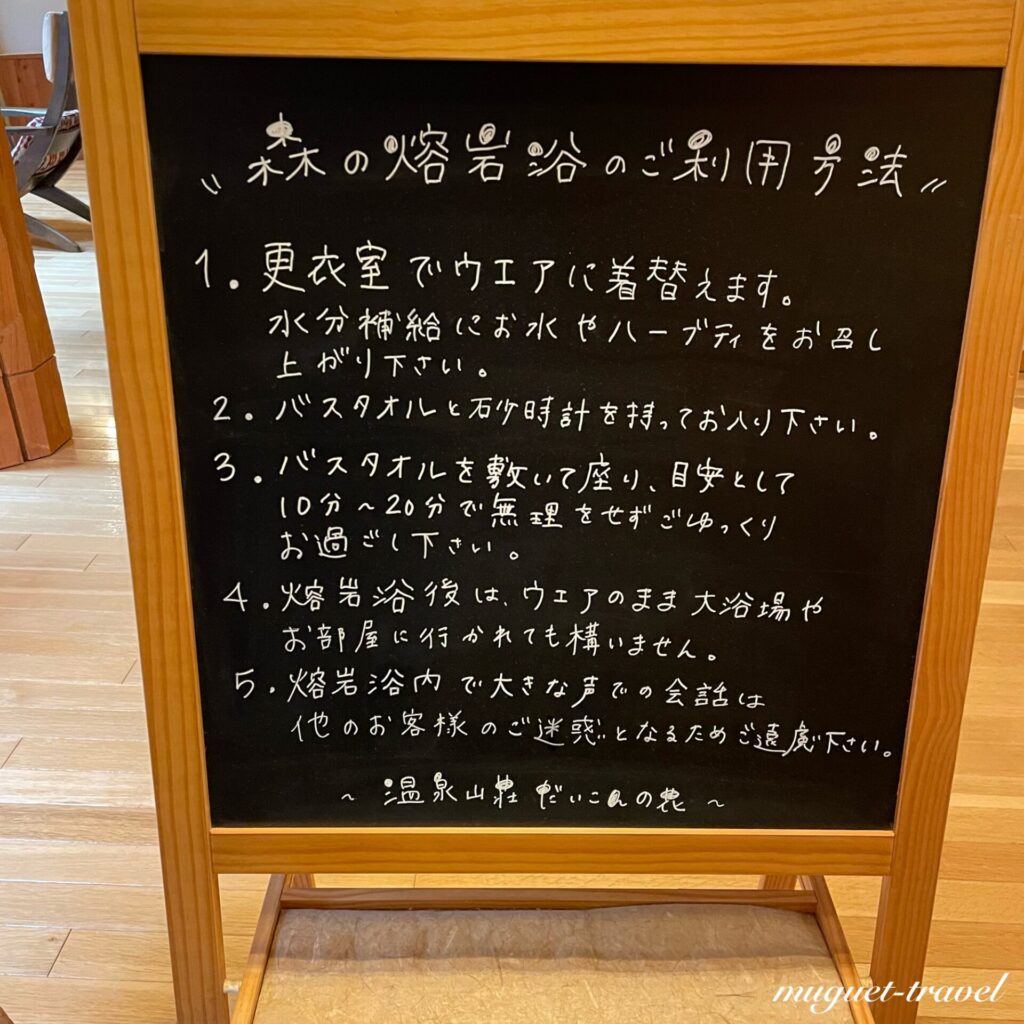 〃森の熔岩浴のご利用方法〃
1. 更衣室でウエアに着替えます。
水分補給にお水やハーブティをお召し
上がり下さい。
2. バスタオルと砂時計を持ってお入り下さい。
3. バスタオルを敷いて座り、目安として
10分～20分で無理をせずごゆっくり
お過ごし下さい。
4. 熔岩浴後は、ウエアのまま大浴場や
お部屋に行かれても構いません。
5. 熔岩浴内で大きな声での会話は
他のお客様のご迷惑となるためご遠慮下さい。
～ 温泉山荘 だいこんの花 ～
muguet-travel